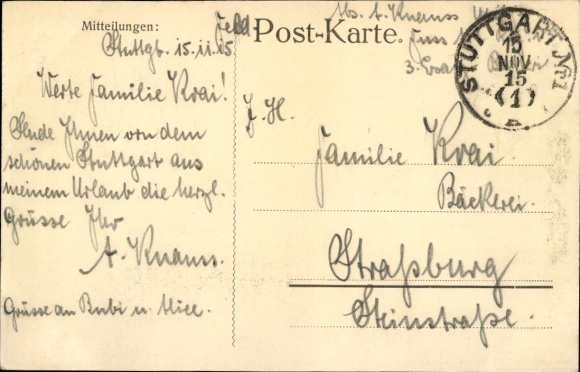 Mitteilungen:
Stuttgb. 15.11.15
Werte Familie Krai!
Sende Ihnen von dem
schönen Stuttgart aus
meinem Urlaub die herzl.
Grüsse Ihr
A. Knauss.
Grüsse an Bubi u. Alice.
Feld
Post-Karte.
Abs. A. Knauss
Fuss
3. Ersatz
STUTTGART Nr. 1
15
NOV
15
(1)
F. H.
Familie Krai.
Bäckerei.
Straßburg
Steinstraße.